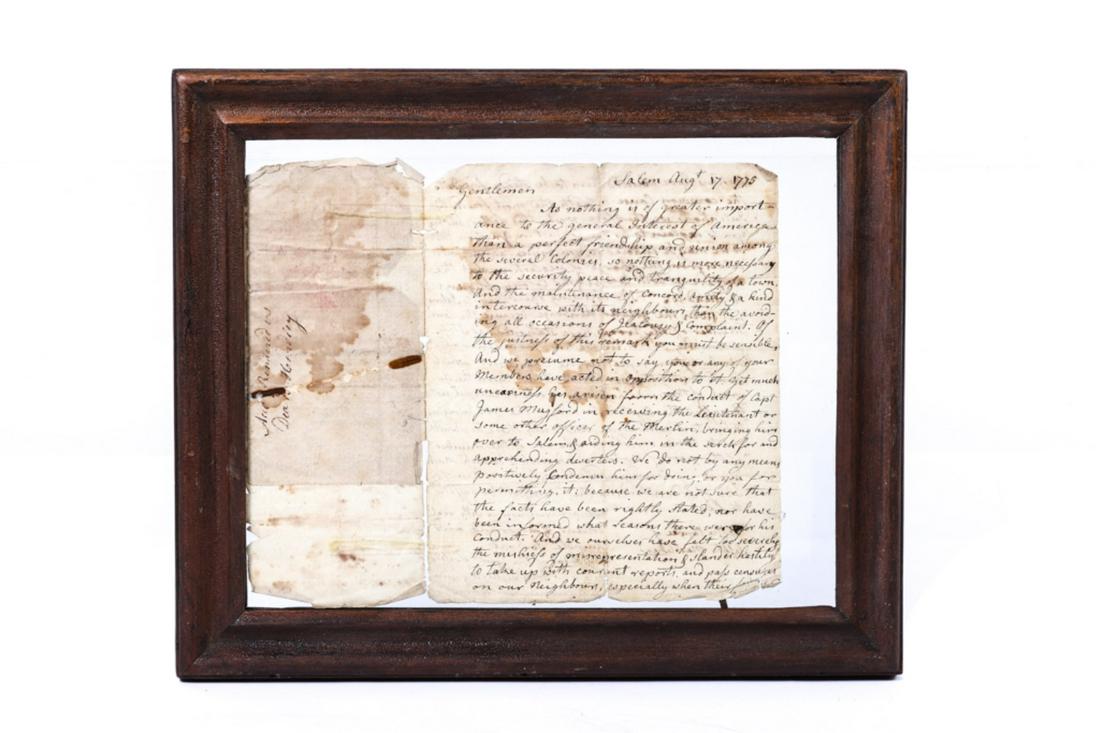 Salem Augt 17. 1775
Gentlemen
As nothing is of greater import-
ance to the general Interest of America
than a perfect friendship and union among
the several Colonies, so nothing is more necessary
to the security peace and tranquility of a town
And the maintenance of Concord, & a kind
intercourse with its neighbours, than the avoid-
ing all occasions of Jealousy & Complaint. Of
the justness of this remark you must be sensible,
And we presume not to say you or any of your
Members have acted in opposition to it. Yet much
uneasiness has arisen from the conduct of Capt
James Mugford in receiving the Lieutenant or
some other officer of the Merlin, bringing him
over to Salem, & aiding him in the serch for and
apprehending deserters. We do not by any means
positively Condemn him for doing, or you for
permitting, it; because we are not sure that
the facts have been rightly stated; nor have
been informed what reasons there were for his
Conduct. And we ourselves have felt too severely
the mischiefs of misrepresentation & slander hastily
to take up with courant reports, and pass censures
on our Neighbours, especially when their